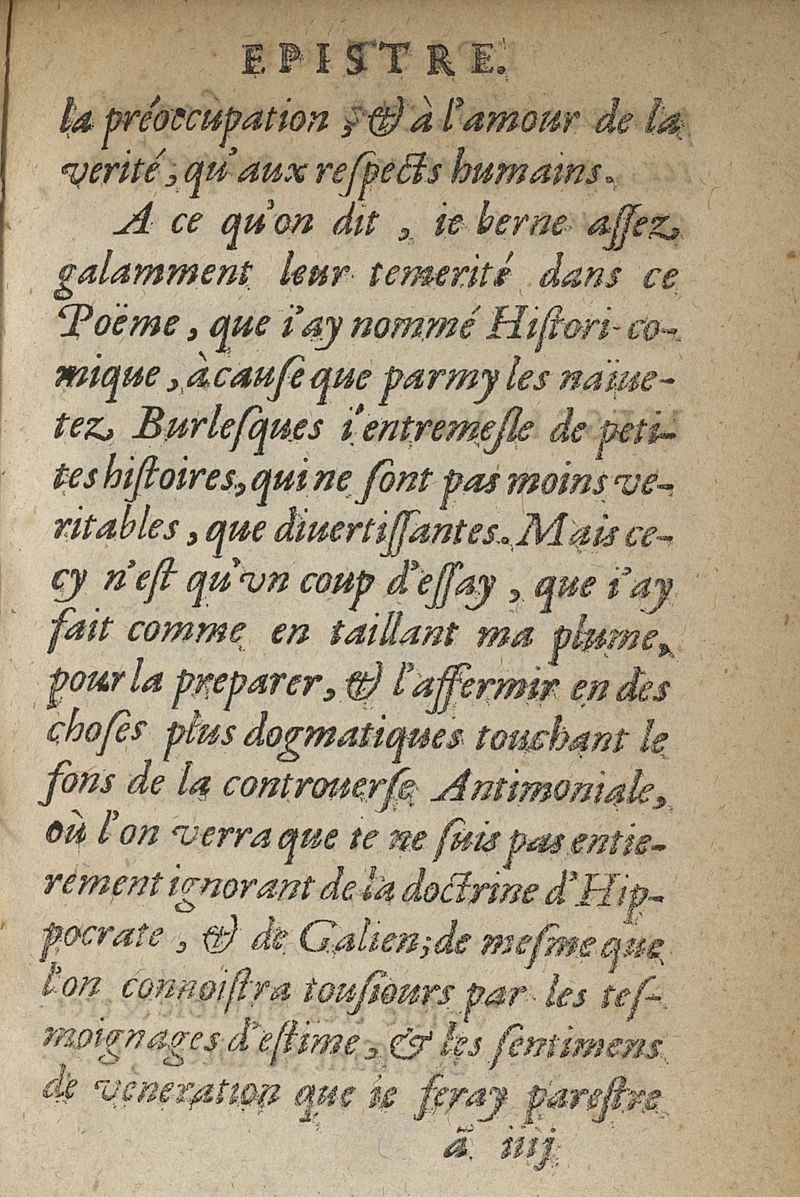 EPISTRE.
la préoccupation, & à l'amour de la
verité, qu'aux reſpects humains.
A ce qu'on dit, ie berne aſſez
galamment leur temerité dans ce
Poëme, que i'ay nommé Hiſtori-co-
mique, à cauſe que parmy les naïue-
tez Burleſques i'entremeſle de peti-
tes hiſtoires, qui ne ſont pas moins ve-
ritables, que diuertiſſantes. Mais ce-
cy n'eſt qu'vn coup d'eſſay, que i'ay
fait comme en taillant ma plume,
pour la preparer, & l'affermir en des
choſes plus dogmatiques touchant le
fons de la controuerſe Antimoniale,
où l'on verra que ie ne ſuis pas entie-
rement ignorant de la doctrine d'Hip-
pocrate, & de Galien; de meſme que
l'on connoiſtra touſiours par les teſ-
moignages d'eſtime, & les ſentimens
de veneration que ie feray pareſtre
ã iiij